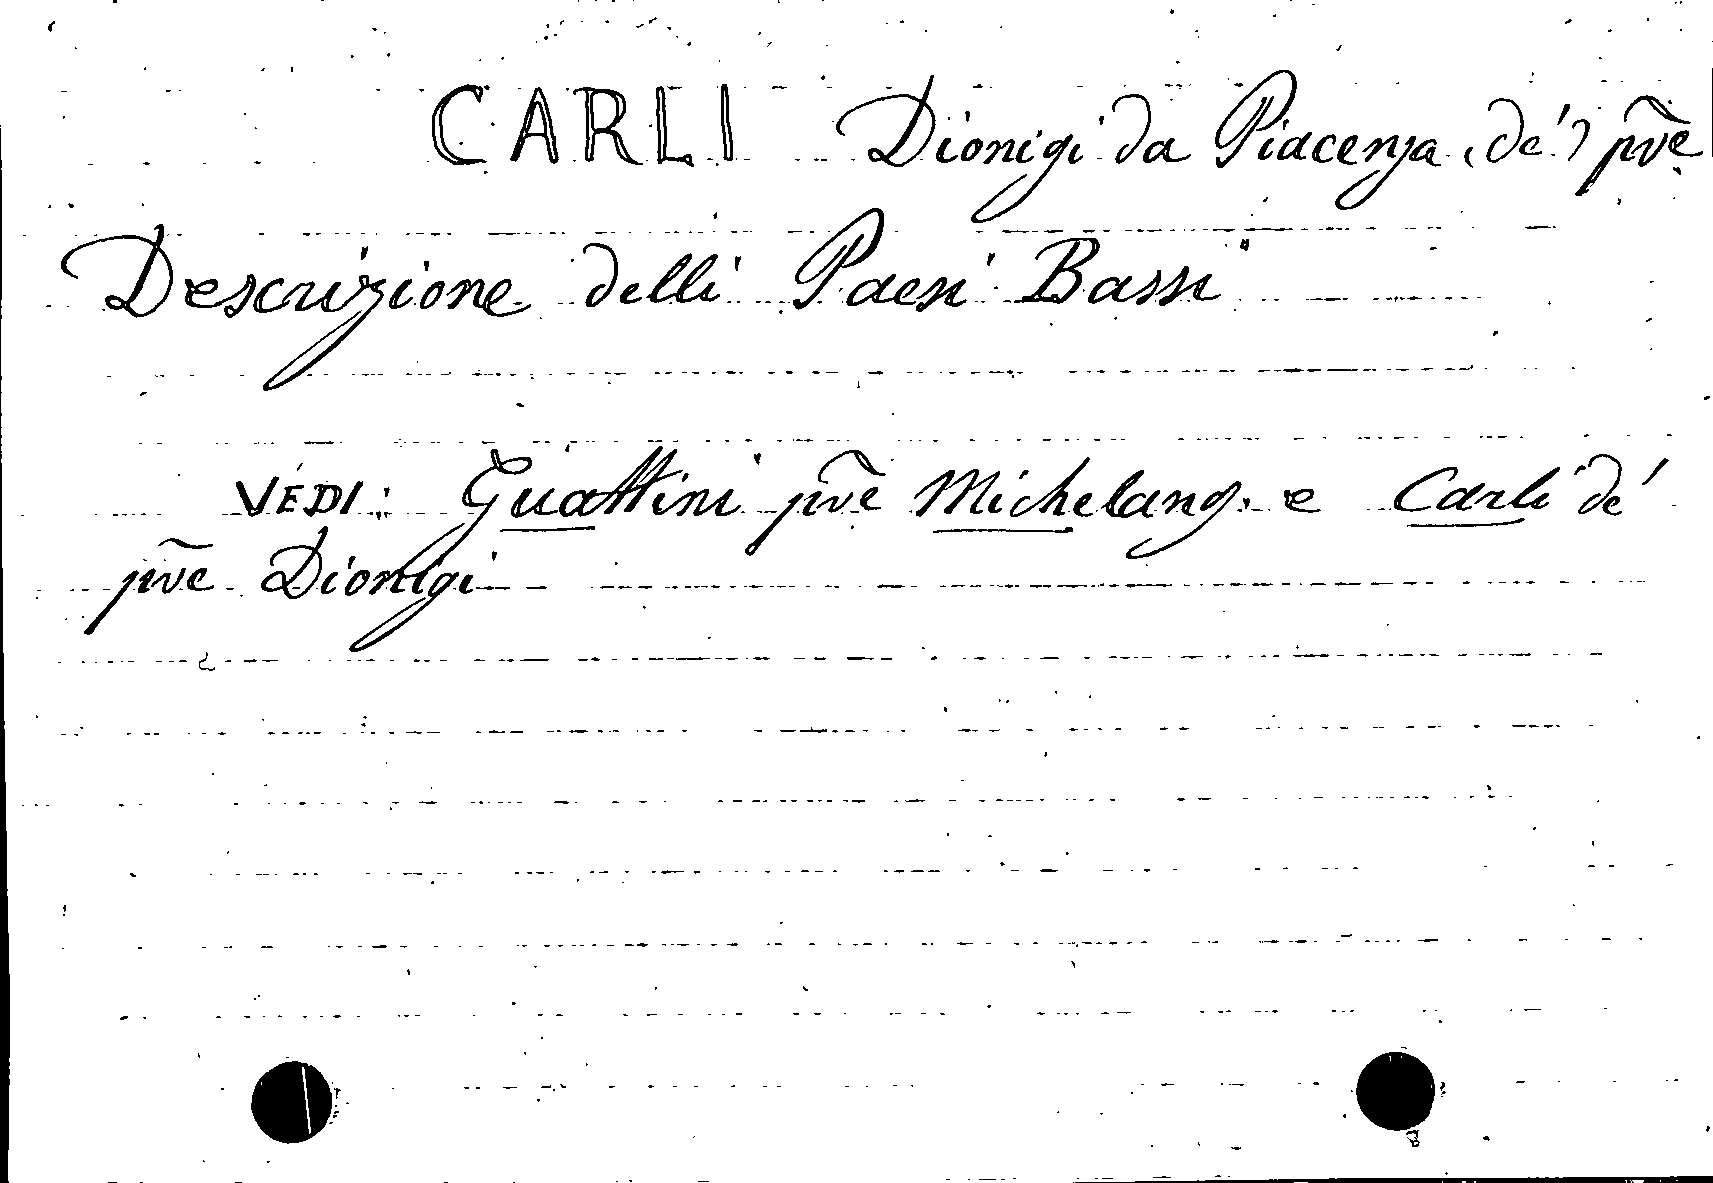 CARLI Dionigi da Piacenza (de') pr̃e
Descrizione delli Paesi Bassi
VEDI: Guattini pr̃e Michelang. e Carli de'
pr̃e Dionigi